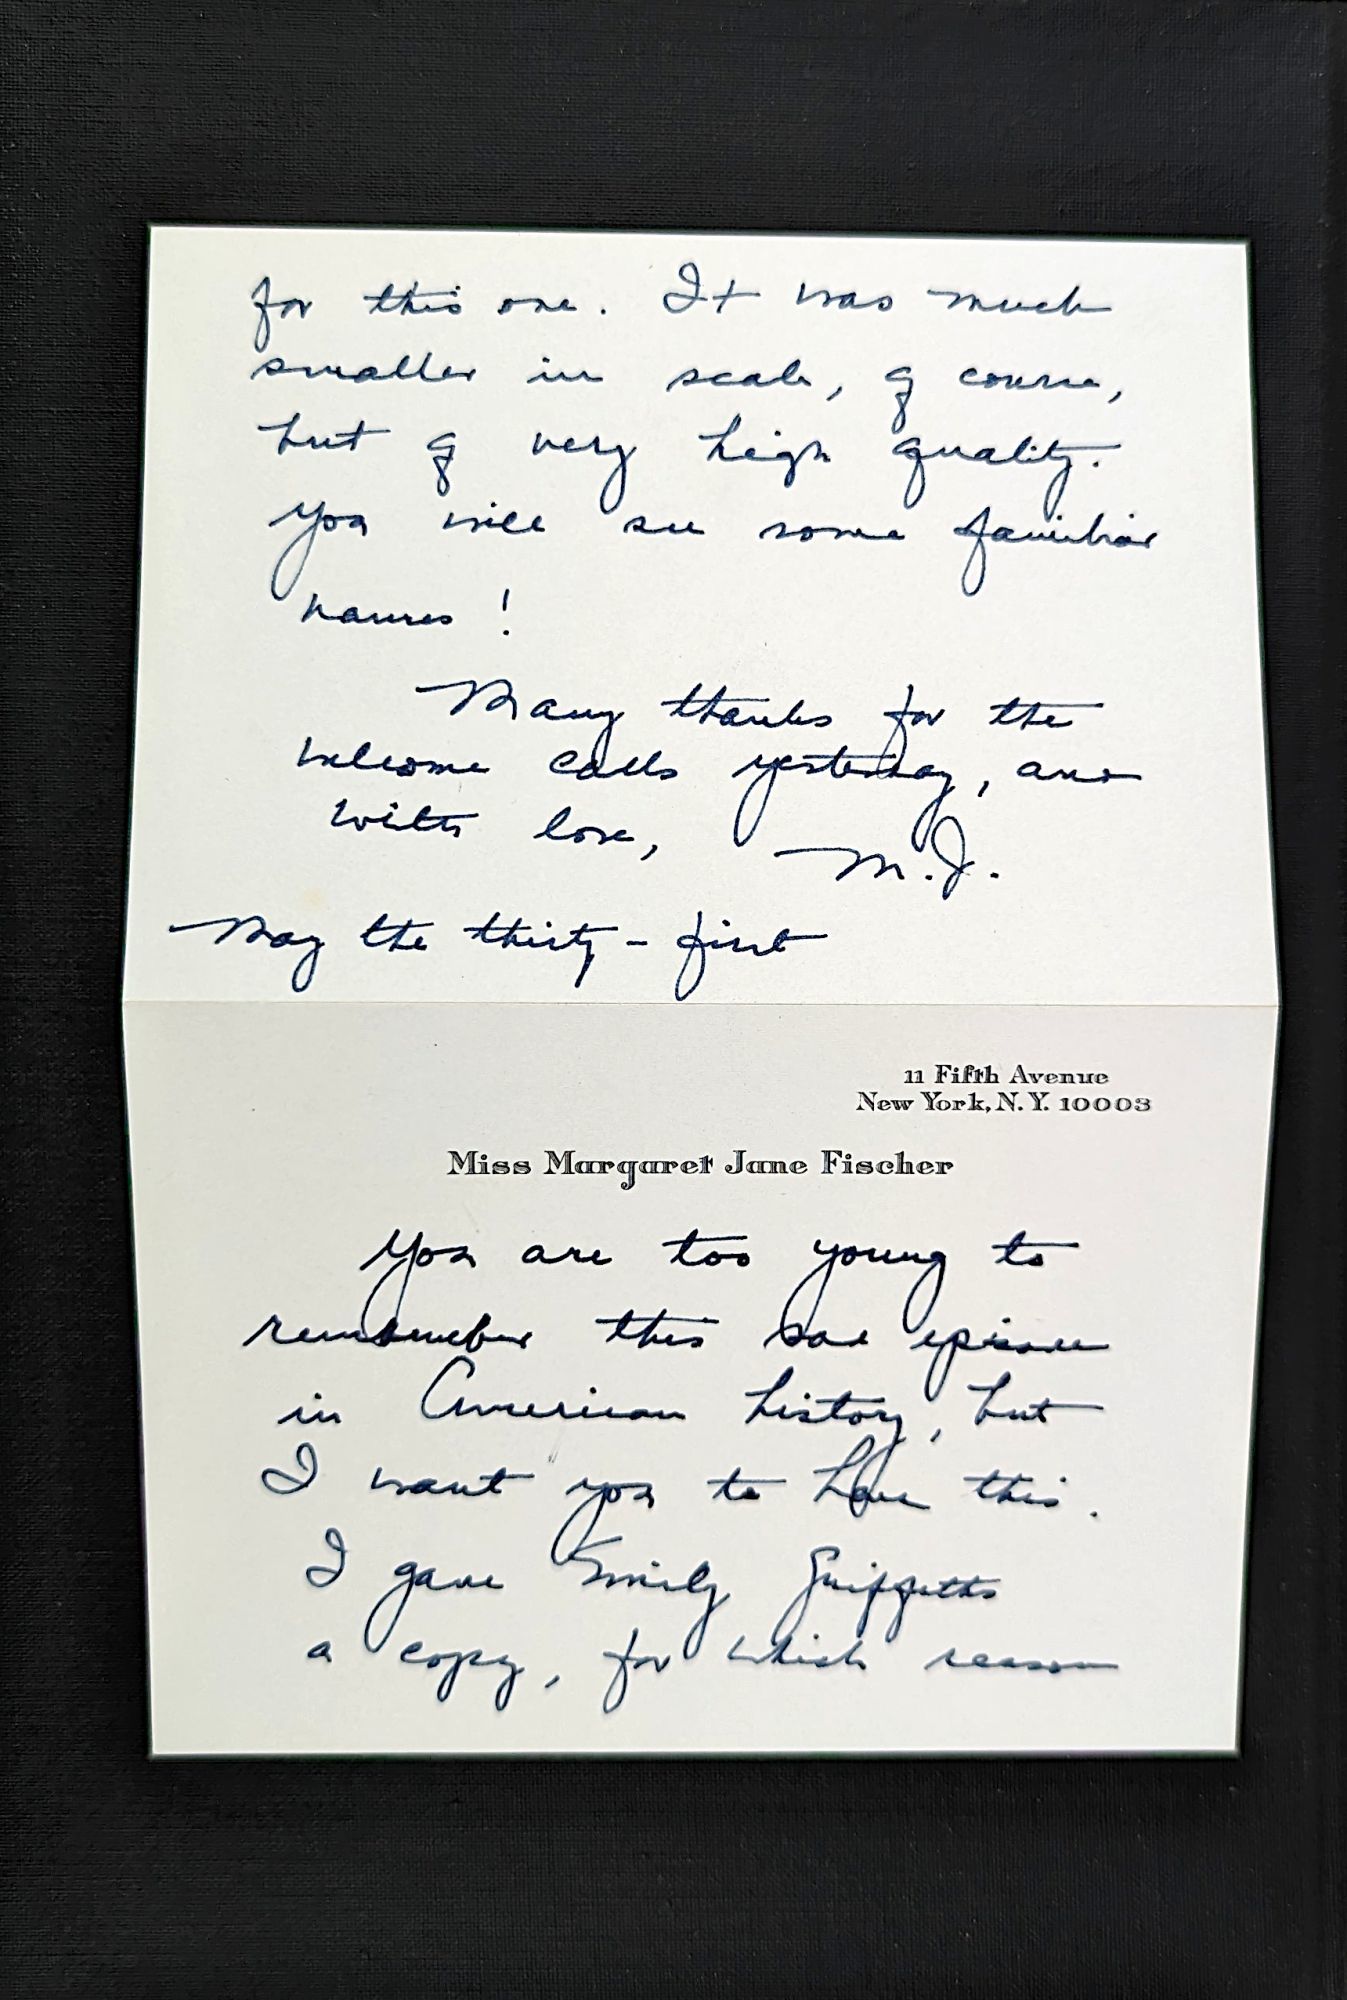 for this one. It was much
smaller in scale, of course,
but of very high quality.
You will see some familiar
names!
Many thanks for the
welcome calls yesterday, and
with love, M.J.
May the thirty-first
11 Fifth Avenue
New York, N.Y. 10003
Miss Margaret Jane Fischer
You are too young to
remember this sad episode
in American history, but
I want you to have this.
I gave Emily Griffiths
a copy, for which reason